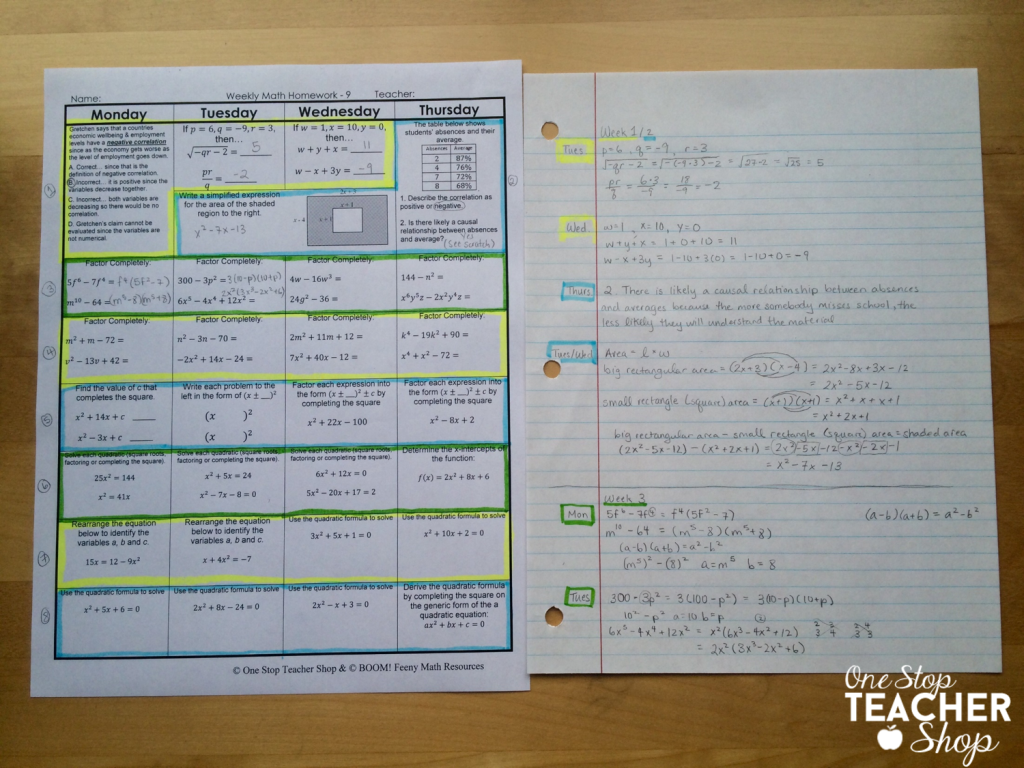 Name:
Weekly Math Homework - 9
Teacher:
Monday
Tuesday
Wednesday
Thursday
Gretchen says that a countries
economic wellbeing & employment
levels have a negative correlation
since as the economy gets worse as
the level of employment goes down.
A. Correct... since that is the
definition of negative correlation.
B. Incorrect... it is positive since the
variables decrease together.
C. Incorrect... both variables are
decreasing so there would be no
correlation.
D. Gretchen's claim cannot be
evaluated since the variables are
not numerical.
If p = 6, q = −9, r = 3,
then...
√-qr − 2 = 5
pr/q = -2
If w = 1, x = 10, y = 0,
then...
w + y + x = 11
w − x + 3y = -9
The table below shows
students' absences and their
average.
Absences Average
2 87%
4 76%
7 72%
8 68%
1. Describe the correlation as
positive or negative.
2. Is there likely a causal
relationship between absences
and average? Yes
(See scratch)
Write a simplified expression
for the area of the shaded
region to the right.
x² - 7x - 13
x + 1
x − 4
Factor Completely:
5f⁶ − 7f⁴ = f⁴(5f²-7)
m¹⁰ − 64 = (m⁵-8)(m⁵+8)
Factor Completely:
300 − 3p² = 3(10-p)(10+p)
2x²(3x³-2x²+6)
6x⁵ − 4x⁴ + 12x² =
Factor Completely:
4w − 16w³ =
24g² − 36 =
Factor Completely:
144 − n² =
x⁶y³z − 2x²y⁴z =
Factor Completely:
m² + m − 72 =
v² − 13v + 42 =
Factor Completely:
n² − 3n − 70 =
−2x² + 14x − 24 =
Factor Completely:
2m² + 11m + 12 =
7x² + 40x − 12 =
Factor Completely:
k⁴ − 19k² + 90 =
x⁴ + x² − 72 =
Find the value of c that
completes the square.
x² + 14x + c ____
x² − 3x + c ____
Write each problem to the
left in the form of (x ± __)²
(x )²
(x )²
Factor each expression into
the form (x ± __)² ± c by
completing the square
x² + 22x − 100
Factor each expression into
the form (x ± __)² ± c by
completing the square
x² − 8x + 2
Solve each quadratic (square roots,
factoring or completing the square).
25x² = 144
x² = 41x
Solve each quadratic (square roots,
factoring or completing the square).
x² + 5x = 24
x² − 7x − 8 = 0
Solve each quadratic (square roots,
factoring or completing the square).
6x² + 12x = 0
5x² − 20x + 17 = 2
Determine the x-intercepts of
the function:
f(x) = 2x² + 8x + 6
Rearrange the equation
below to identify the
variables a, b and c.
15x = 12 − 9x²
Rearrange the equation
below to identify the
variables a, b and c.
x + 4x² = −7
Use the quadratic formula to solve
3x² + 5x + 1 = 0
Use the quadratic formula to solve
x² + 10x + 2 = 0
Use the quadratic formula to solve
x² + 5x + 6 = 0
Use the quadratic formula to solve
2x² + 8x − 24 = 0
Use the quadratic formula to solve
2x² − x + 3 = 0
Derive the quadratic formula
by completing the square on
the generic form of the a
quadratic equation:
ax² + bx + c = 0
© One Stop Teacher Shop & © BOOM! Feeny Math Resources
1
2
3
4
5
6
7
8
Week 1/2
Tues
p=6 q=-9, r=3
√-qr-2 = √-(-9·3)-2 = √27-2 = √25 = 5
pr/q = 6·3/-9 = 18/-9 = -2
Wed
w=1, x=10, y=0
w+y+x = 1+0+10 = 11
w-x+3y = 1-10+3(0) = 1-10+0 = -9
Thurs
2. There is likely a causal relationship between absences
and averages because the more somebody misses school, the
less likely they will understand the material
Tues/Wed
Area = l·w
big rectangular area = (2x+3)(x-4) = 2x²-8x+3x-12
= 2x²-5x-12
small rectangle (square) area = (x+1)(x+1) = x²+x+x+1
= x²+2x+1
big rectangular area - small rectangle (square) area = shaded area
(2x²-5x-12) - (x²+2x+1) = 2x²-5x-12-x²-2x-1
= x²-7x-13
Week 3
Mon
5f⁶-7f⁴ = f⁴(5f²-7)
(a-b)(a+b) = a²-b²
m¹⁰-64 = (m⁵-8)(m⁵+8)
(a-b)(a+b) = a²-b²
(m⁵)²-(8)² a=m⁵ b=8
Tues
300-3p² = 3(100-p²) = 3(10-p)(10+p)
10²-p² a=10 b=p
6x⁵-4x⁴+12x² = x²(6x³-4x²+12)
= 2x²(3x³-2x²+6)
One Stop
TEACHER
Shop